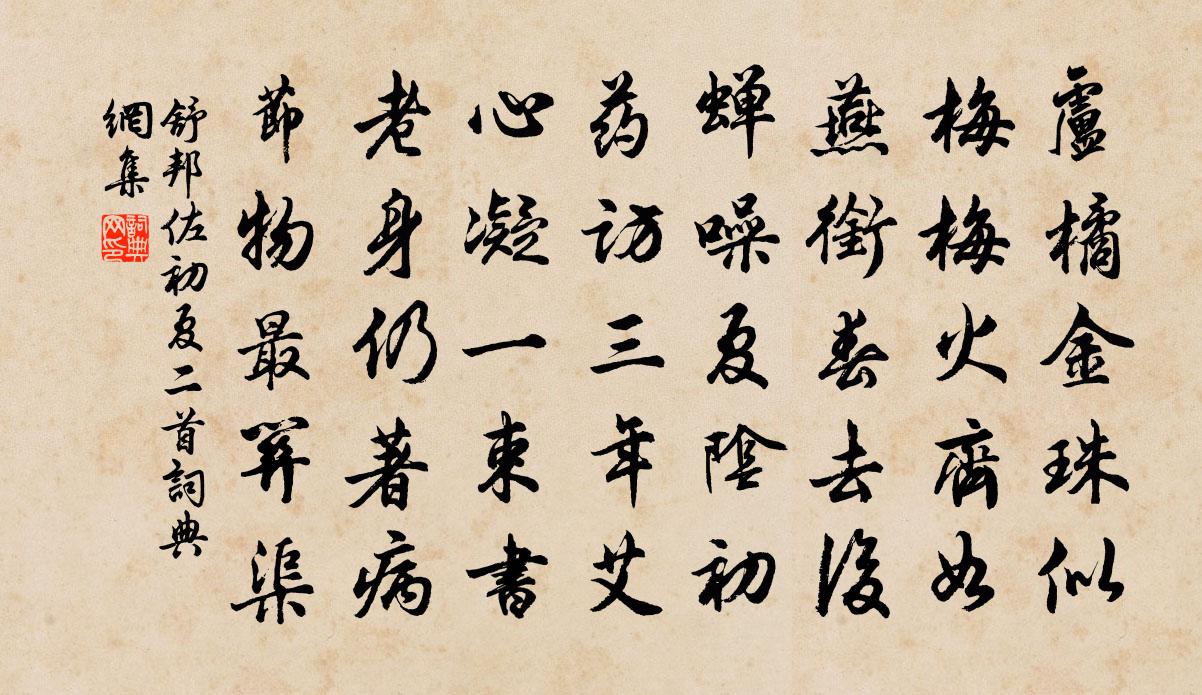 盧橘金珠似
梅梅火齊如
燕銜春去後
蝉噪夏陰初
药访三年艾
心凝一束書
老身仍著病
節物最關渠
舒邦佐初夏二首詞典
網集
詞典网印